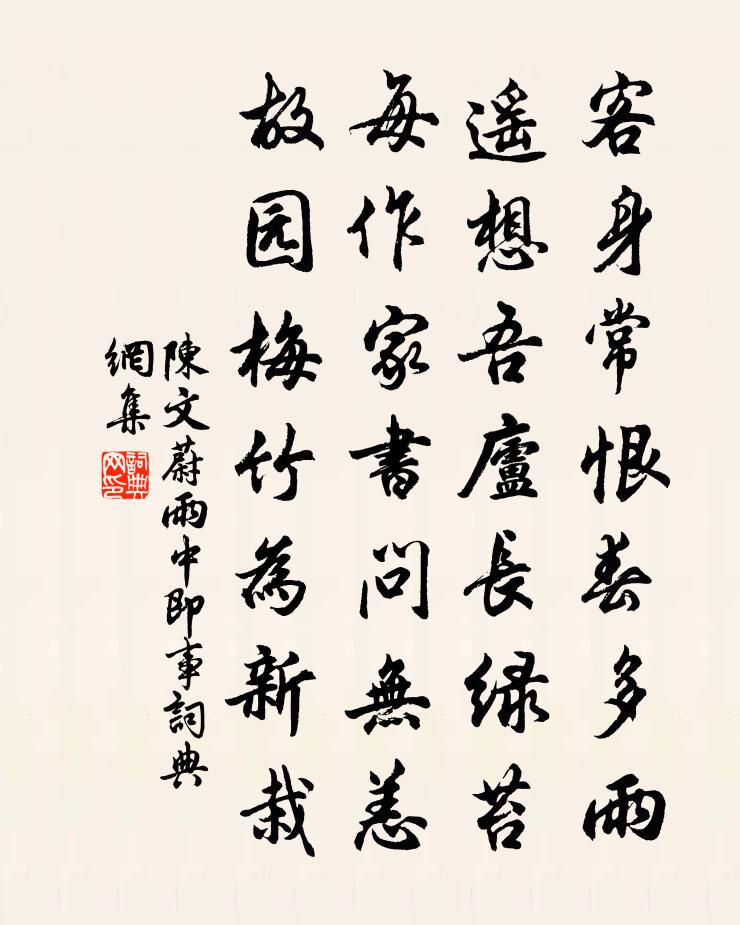 客身常恨春多雨
遥想吾廬長绿苔
每作家書問無恙
故园梅竹為新栽
陳文蔚雨中即事詞典
網集
詞典
网印